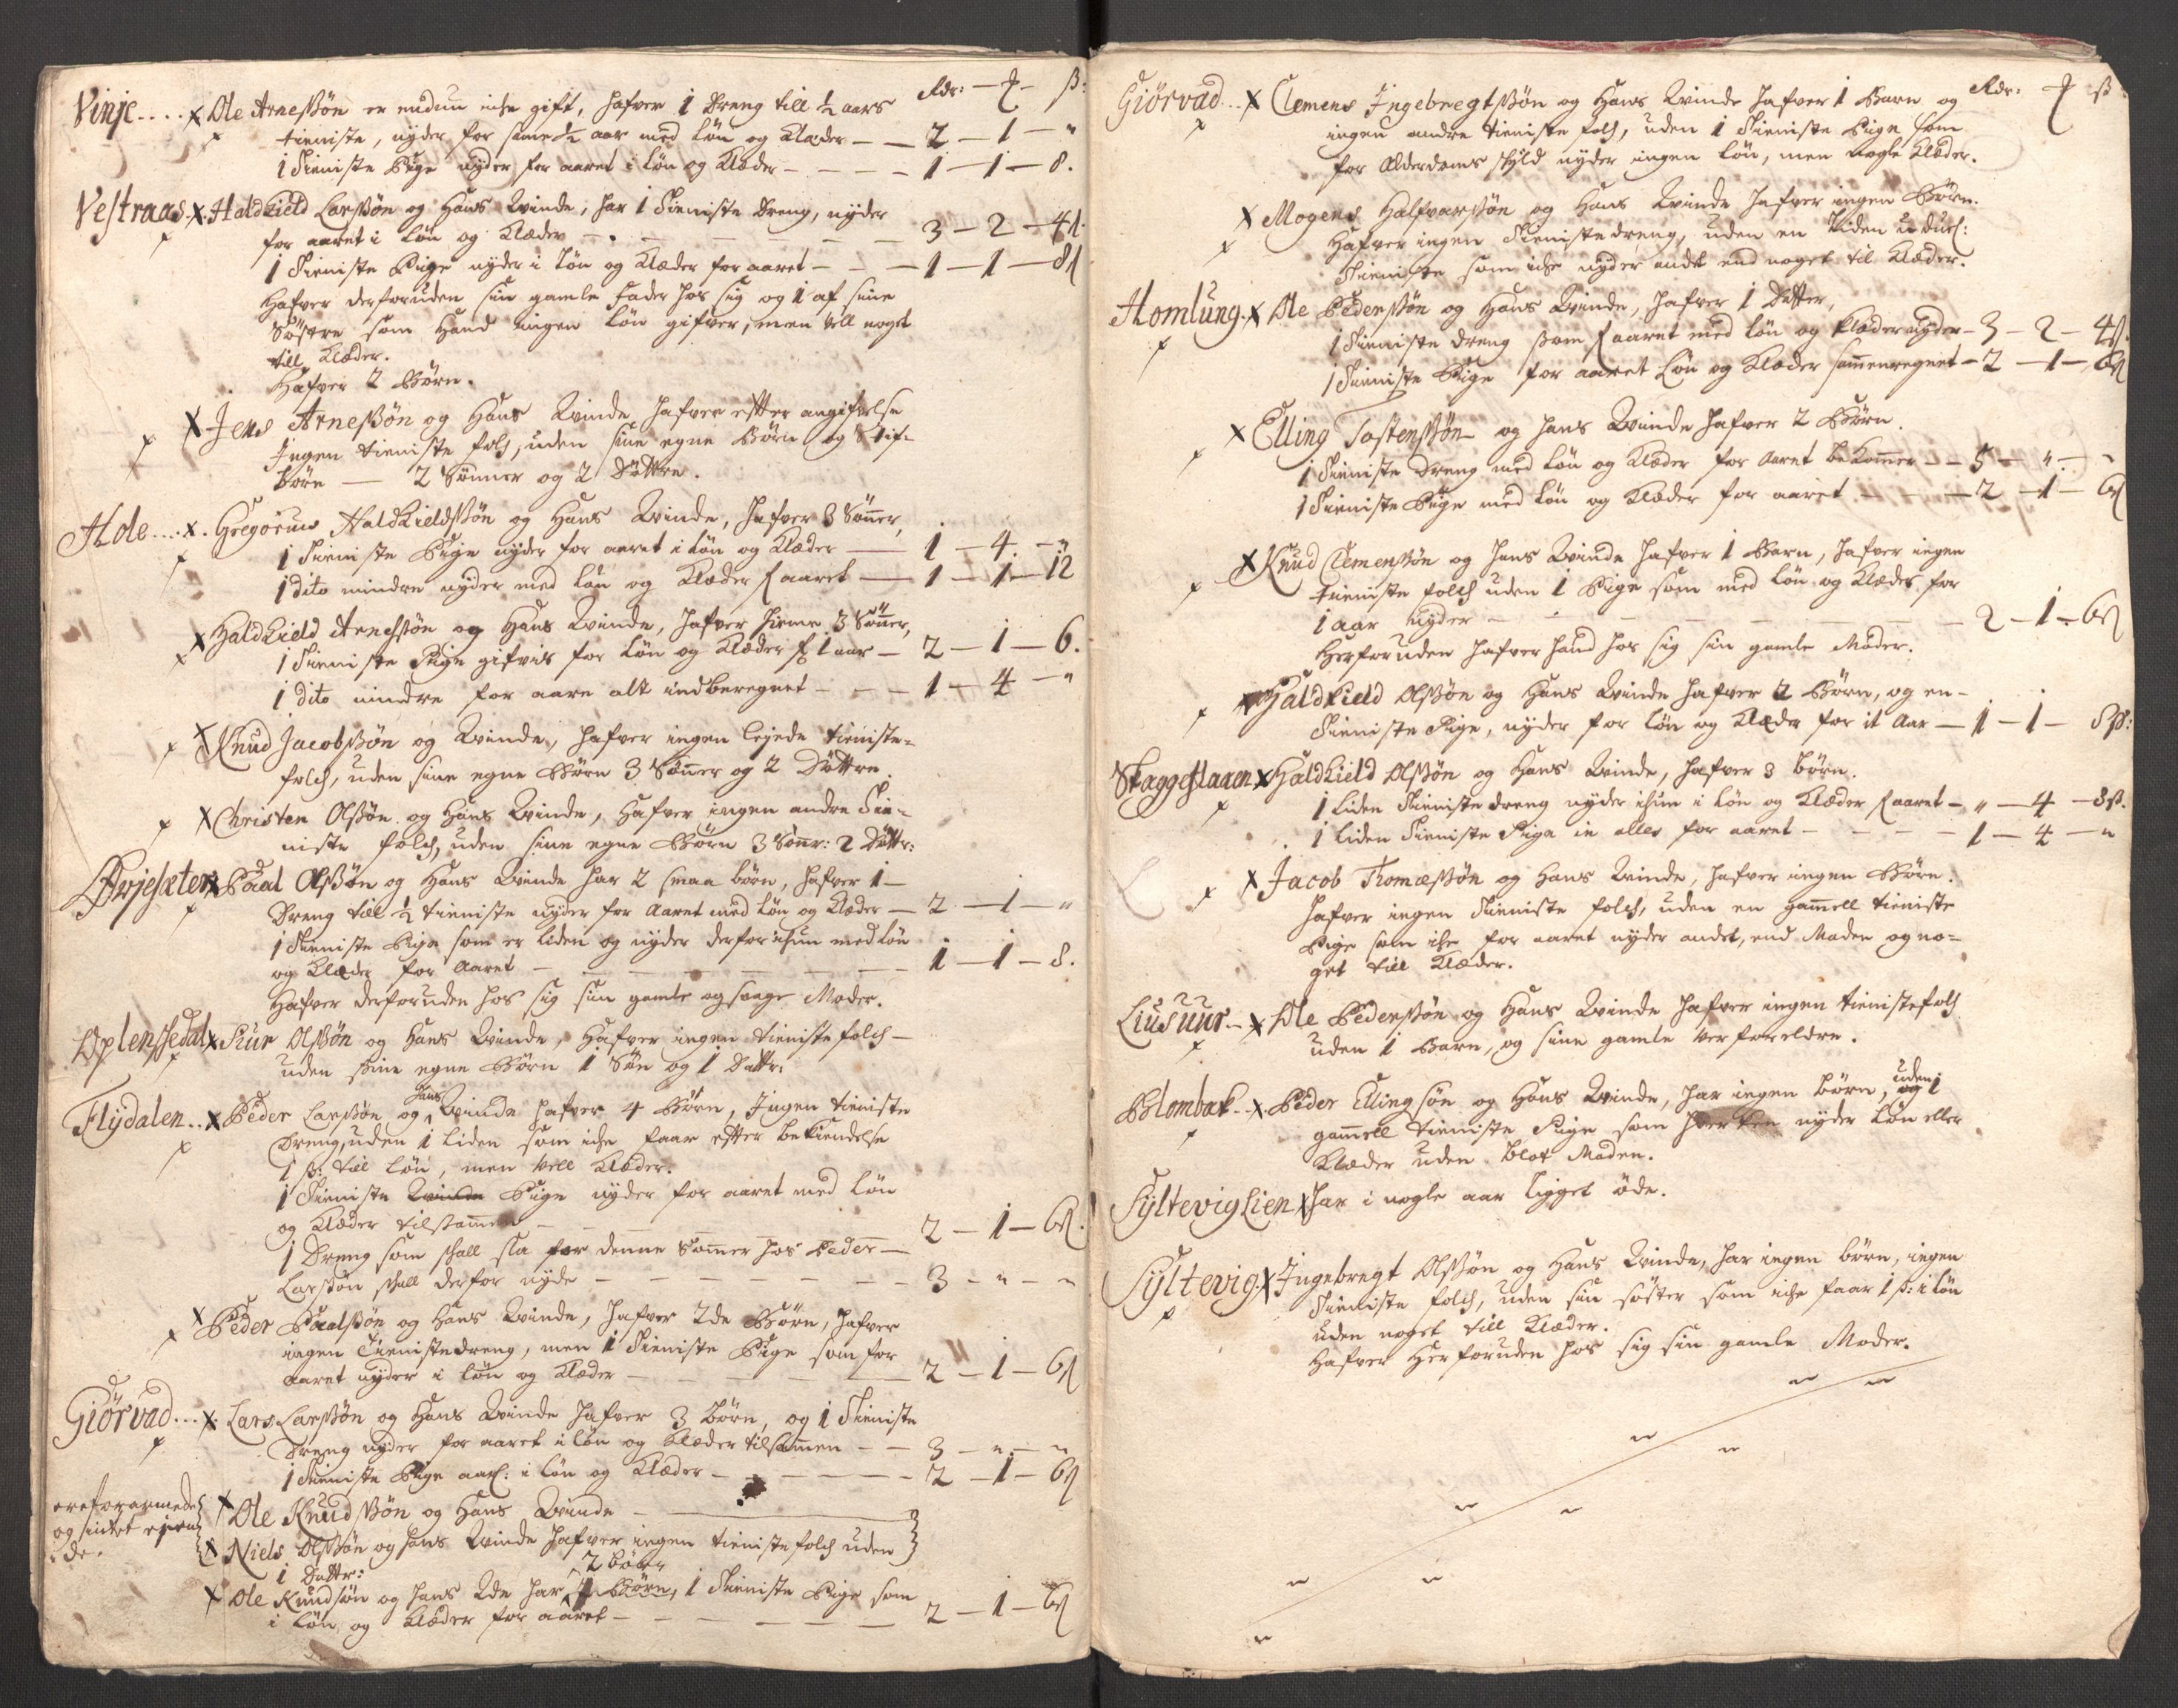 Rdr: — ƺ — ß:
Vinje .... x Ole Arneßøn er endnu iche gift, hafver 1 Dreng till ½ aars
tieniste, nyder for samme ½ aar med løn og Klæder — — 2 — 1 — "
1 Tieniste Pige nyder for aaret i løn og Klæder — — — — 1 — 1 — 8.
Vestraas. x. Haldkield Larßøn og Hans Qvinde, har 1 Tieniste Dreng, nyder
for aaret i løn og Klæder — — — — — 3 — 2 — 4ß.
1 Tieniste Pige nyder i løn og Klæder for aaret — — — 1 — 1 — 8ß
Hafver derforuden sin gamle Fader hos sig og 1 af sine
Søstre som Hand ingen løn gifver, men vell noget
till Klæder.
Hafver 2 Børn.
x Jens Arneßøn og Hans Qvinde hafver efter angifvelse
Ingen tieniste folch, uden sine egne Børn og Stif-
børn — 2 Sønner og 2 Døttre.
Hole .... x. Gregorius Haldkieldßøn og Hans Qvinde, hafver 3 Sønner,
1 Tieniste Pige nyder for aaret i løn og Klæder — 1 — 4 — "
1 dito mindre nyder med løn og Klæder f aaret — 1 — 1 — 12
x Haldkield Arneßøn og Hans Qvinde, hafver hieme 3 Sønner,
1 Tieniste Pige gifvis for løn og Klæder f 1 aar — 2 — 1 — 6.
1 dito mindre for aare alt indberegnet — — — 1 — 4 — "
x Knud Jacobßøn og Qvinde, hafver ingen lejede tieniste-
folch, uden sine egne Børn 3 Sønner og 2 Døttre.
x Christen Olßøn og Hans Qvinde, Hafver ingen andre Tie-
niste folch, uden sine egne Børn 3 Sønr: 2 Døttr:
Ørjesæter x Paal Olßøn og Hans Qvinde har 2 smaa børn, hafver 1 —
Dreng till ½ tieniste nyder for Aaret med løn og Klæder — 2 — 1 — "
1 Tieniste Pige som er liden og nyder derfor ichun med løn
og Klæder for Aaret — — — — — — 1 — 1 — 8.
Hafver derforuden hos sig sin gamle og svage Moder.
Oplenskedal x Siur Olßøn og Hans Qvinde, Hafver ingen tieniste folch —
uden sine egne Børn 1 Søn og 1 Dattr:
Flydalen .. x Peder Larßøn og Hans Qvinde hafver 4 Børn, Ingen tieniste
Dreng, uden 1 liden som iche faar efter bekiendelse
1 ß: till løn, men vell Klæder.
1 Tieniste Qvinde Pige nyder for aaret med løn
og Klæder tilsammen — — — — — 2 — 1 — 6ß.
1 Dreng som schall sta for denne Sommer hos Peder —
Larßøn schall derfor nyde — — — — — — 3 — " — "
x Peder Paalßøn og Hans Qvinde, hafver 2de Børn, hafver
ingen Tienistedreng, men 1 Tieniste Pige som for
aaret nyder i løn og Klæder — — — — 2 — 1 — 6ß
Giørvad ... x. Lars Larßøn og Hans Qvinde hafver 3 børn, og 1 Tieniste
Dreng nyder for aaret i løn og Klæder tilsammen — — 3 — " — "
1 Tieniste Pige aarl: i løn og Klæder — — — — 2 — 1 — 6ß
ere forarmede
og intet ejen-
de.
x Ole Knudßøn og Hans Qvinde —
x Niels Olßøn og hans Qvinde hafver ingen tieniste folch uden
1 Dattr:
2 børn
x Ole Knudsøn og hans Qde har 1 Børn, 1 Tieniste Pige som
i løn og Klæder for aaret — — — — — 2 — 1 — 6ß
Rdr: ƺ ß.
Giørvad ... x Clemens Ingebregtßøn og Hans Qvinde hafver 1 Barn og
ingen andre tieniste folch, uden 1 Tieniste Pige som
for Alderdoms schyld nyder ingen løn, men nogle Klæder.
x Mogens Halfvarßøn og Hans Qvinde hafver ingen Børn.
Hafver ingen Tienistedreng, uden en liden uduel:
Tieniste som iche nyder andet end noget til Klæder.
Homlung. x Ole Pederßøn og Hans Qvinde, hafver 1 Datter,
1 Tieniste dreng ßom f aaret med løn og Klæder nyder — 3 — 2 — 4ß.
1 Tieniste Pige for aaret løn og Klæder sammenregnet — 2 — 1 — 6ß
x Elling Tostenßøn og hans Qvinde hafver 2 Børn.
1 Tieniste dreng med løn og Klæder for Aaret bekommer — — 5 — " — "
1 Tieniste Pige med løn og Klæder for aaret — — — 2 — 1 — 6ß
x Knud Clemenßøn og hans Qvinde hafver 1 Barn, hafver ingen
tieniste folch uden 1 Pige som med løn og Klæder for
1 aar nyder — — — — — — — 2 — 1 — 6ß
Herforuden hafver hand hos sig sin gamle Moder.
x Haldkield Olßøn og Hans Qvinde hafver 2 Børn, og en —
Tieniste Pige, nyder for løn og Klæder for it Aar — 1 — 1 — 8ß:
Skaggeflaaen x Haldkield Olßøn og Hans Qvinde, hafver 3 børn.
1 liden Tieniste dreng nyder ichun i løn og Klæder f aaret — " — 4 — 8ß.
1 liden Tieniste Pige in alles for aaret — — — — 1 — 4 — "
x Jacob Thomæßøn og Hans Qvinde, hafver ingen Børn.
hafver ingen Tieniste folch, uden en gammell tieniste
Pige som iche for aaret nyder andet, end Maden og no-
get till Klæder.
Liusuur — x Ole Pederßøn og Hans Qvinde hafver ingen tienistefolch
uden 1 Barn, og sine gamle Verforeldre.
Blombak .. x. Peder Ellingsøn og Hans Qvinde, har ingen børn, og uden 1
gammell tieniste Pige som hverken nyder løn eller
Klæder uden blot Maden.
SyltevigLien x har i nogle aar ligget øde.
Syltevig. x Ingebregt Olßøn og Hans Qvinde, har ingen børn, ingen
Tieniste folch, uden sin søster som iche faar 1 ß: i løn
uden noget till Klæder.
Hafver Herforuden hos sig sin gamle Moder.